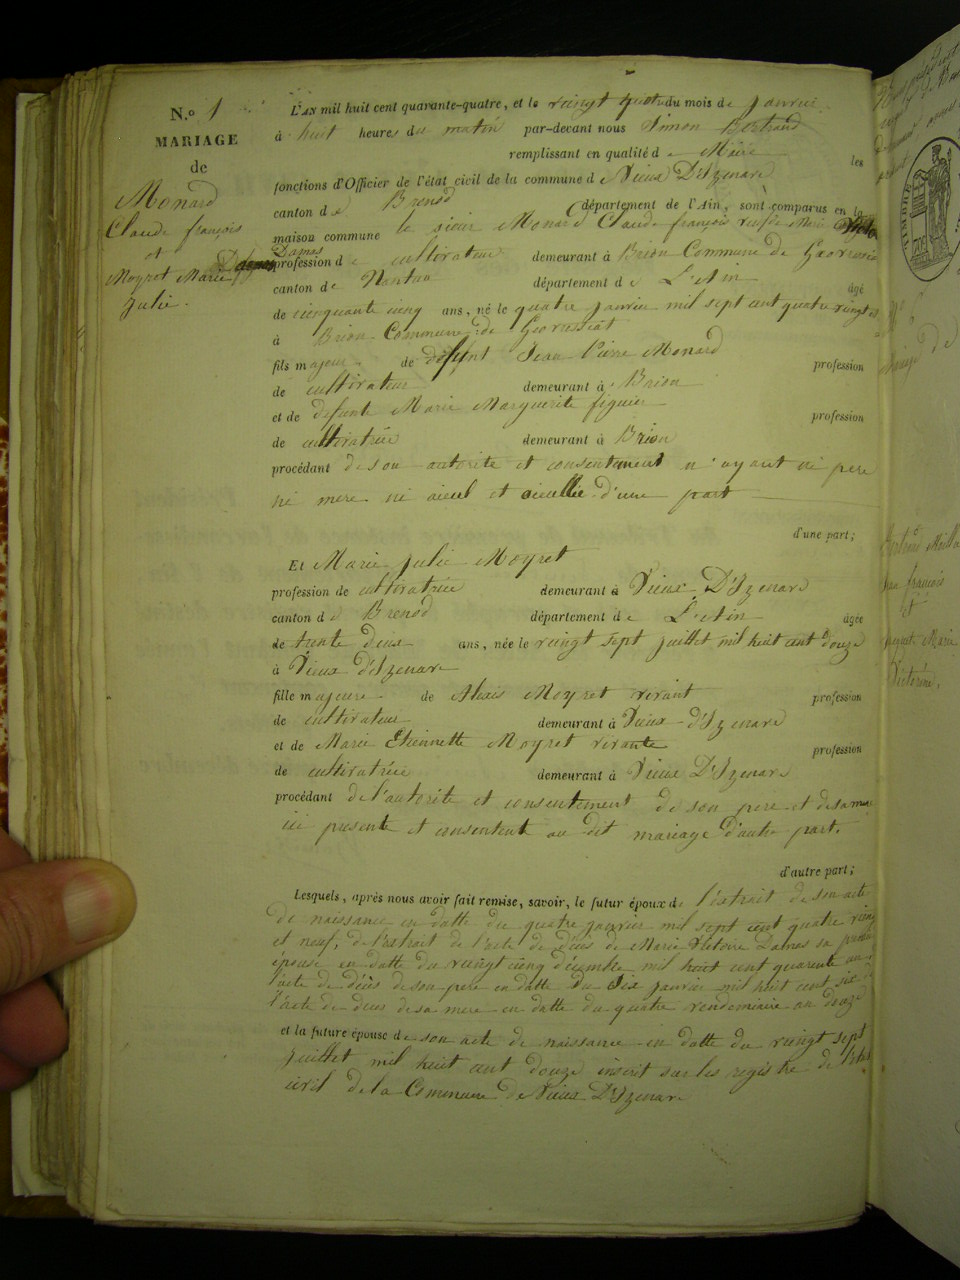 N.o 1
MARIAGE
de
Monard
Claude françois
et
Moyret Marie
Julie.
L'AN mil huit cent quarante-quatre, et le vingt quatre du mois de janvier
à huit heures du matin par-devant nous Simon Bertrand
remplissant en qualité de Maire les
fonctions d'Officier de l'état civil de la commune de Vieux D'Izenave
canton de Brenod département de l'Ain, sont comparus en la
maison commune le sieur Monard Claude françois veuf de Marie Victoire
Damas
profession de cultivateur demeurant à Brion Commune de Geovressiat
canton de Nantua département de L'Ain âgé
de cinquante cinq ans, né le quatre janvier mil sept cent quatre vingt
à Brion Commune de Geovressiat
fils majeur de défunt Jean Pierre Monard profession
de cultivateur demeurant à Brion
et de defunte Marie Marguerite figuier profession
de cultivatrice demeurant à Brion
procédant de son autorité et consentement n'ayant ni pere
ni mere ni aieul et aieulle d'une part
d'une part;
Et Marie Julie Moyret
profession de cultivatrice demeurant à Vieux D'Izenave
canton de Brenod département de L'Ain âgée
de trente deux ans, née le vingt sept juillet mil huit cent douze
à Vieux d'Izenave
fille majeure de Alexis Moyret vivant profession
de cultivateur demeurant à Vieux d'Izenave
et de Marie Etiennette Moyret vivante profession
de cultivatrice demeurant à Vieux D'Izenave
procédant de l'autorité et consentement de son pere et de sa mere
ici present et consentent au dit mariage d'autre part.
d'autre part;
Lesquels, après nous avoir fait remise, savoir, le futur époux de l'extrait de son acte
de naissance en datte du quatre janvier mil sept cent quatre vingt
et neuf, de l'extrait de l'acte de décès de Marie Victoire Damas sa
épouse en datte du vingt cinq décembre mil huit cent quarante
l'acte de décès de son pere en datte du dix janvier mil huit cent six
l'acte de deces de sa mere en datte du quatre vendemiaire an douze
et la future épouse de son acte de naissance en datte du vingt sept
juillet mil huit cent douze inscrit sur les registre de l'état
civil de la Commune de Vieux D'Izenave
TIMBRE
françois
et
Marie
Victorine.